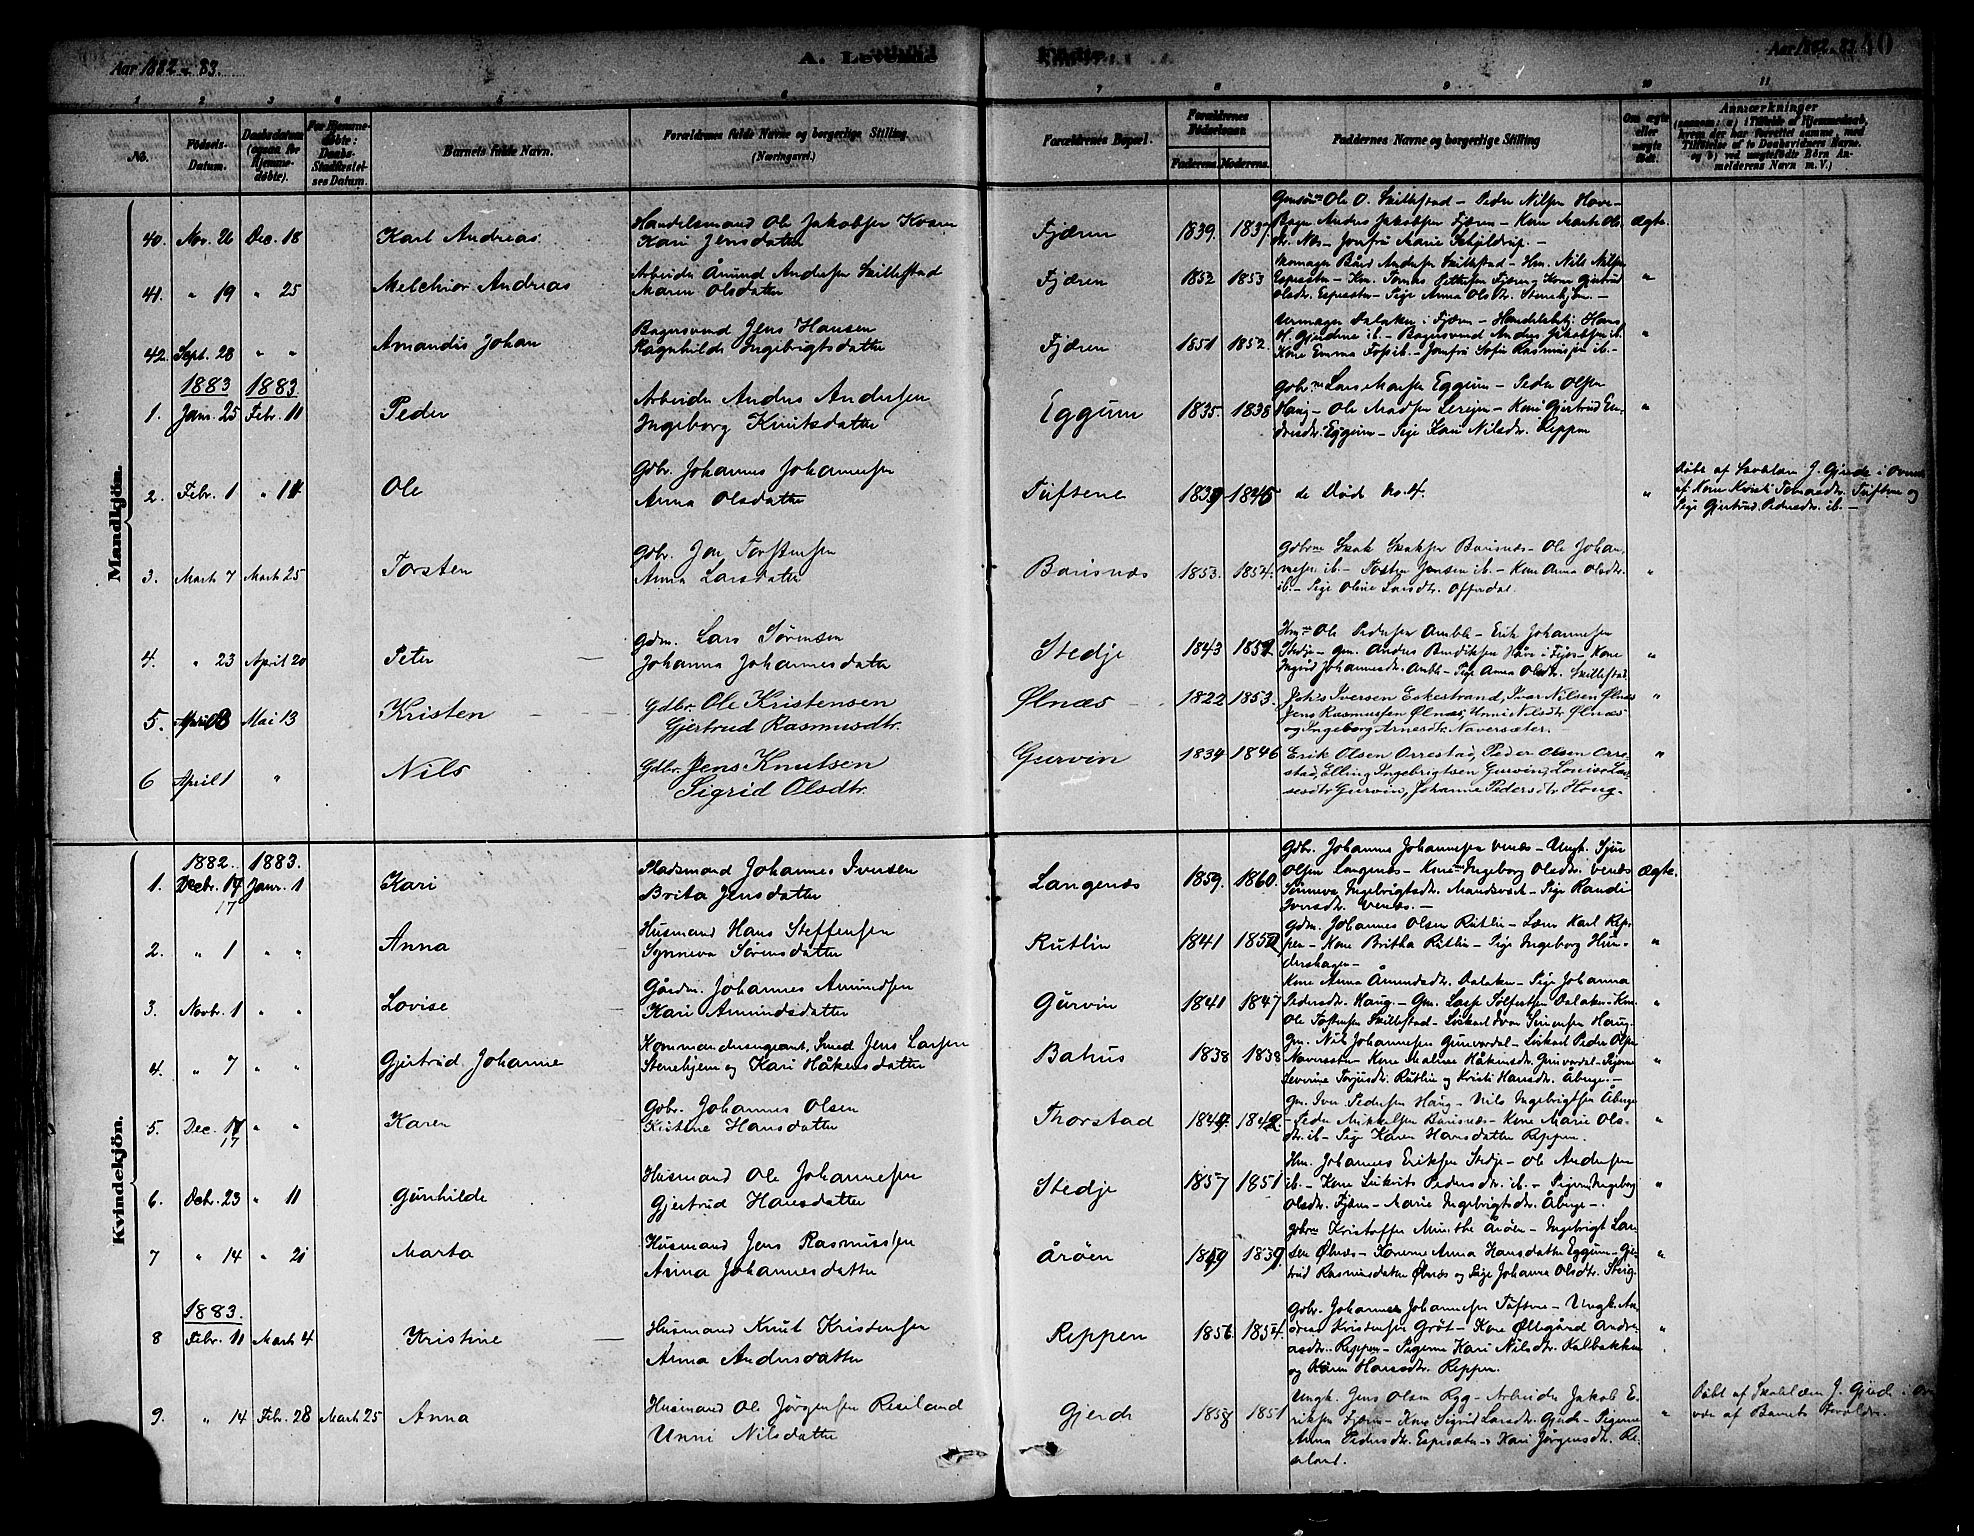 Aar 1882-83. A. Levende Fødte. Aar 1882-83. 40
1 2 3 4 5 6 7 8 9 10 11
No. Fødsels-Datum. Daabsdatum (ogsaa for Hjemmedøbte). For Hjemmedøbte: Daabs-Stadfæstelses Datum. Barnets fulde Navn. Forældrenes fulde Navne og borgerlige Stilling. (Næringsvei.) Forældrenes Bopæl. Forældrenes Fødselsaar. Faderens. Moderens. Faddernes Navne og borgerlige Stilling Om ægte eller uægte født. Anmærkninger
Mandkjön.
40. Nov. 26 Dec. 18 Karl Andreas Handelsmand Ole Jakobsen
Kari Jensdatter Fjæren 1839. 1837. Ole O. Skillestad – Peder Nilsen – Anders Jakobsen Fjæren – Kone Marte – Jomfru Marie Schjeldrup. – Ægte.
41. " 19 " 25 Melchior Andreas Arbeider Åmund Andersen Skillestad
Maren Olsdatter Fjæren 1852 1853 Skomager Bård Andersen Skillestad – Hm. Nils Nilsen – Pige Anna Olsdtr. Stenehjem – "
42. Sept. 28 " " Amandus Johan Bagersvend Jens Hansen
Ragnhilde Ingebrigtsdatter Fjæren 1851 1852. Urmager Dalaker i Fjæren – Bagersvend Anders Jakobsen ib. Kone Emma Foss ib. – Jomfru Sofie Rasmussen ib. – "
1883 1883
1. Janr. 25 Febr. 11 Peder Arbeider Anders Andersen
Ingeborg Knutsdatter Eggum 1835. 1838 Gdbr. Lars Eggum – Peder Olsen Haug – Ole Madsen – Kone Gjertrud Eggum – Pige Kari Nilsdtr. Reppen "
2. Febr. 1 " 11 Ole Gdbr. Johannes Johannesen
Anna Olsdatter Tuftene 1839 1845 se Død No. 4. " Døbt af Skolelærer J. Gjerde i
Pige Gjertrud Pedersdtr. ib. –
3. Marts 7 Marts 25 Torsten Gdbr. Jon Torstensen
Anna Larsdatter Barsnæs 1853. 1854. Barsnæs – Ole Johannesen ib. – Torsten Jonsen ib. – Kone Anna Olsdtr. ib. – Pige Oline Larsdtr. Offerdal. "
4. " 23 April 20 Peter Gdm. Lars Sørensen
Johanna Johannesdatter Stedje 1843 1852 Ole Pedersen Amble – Erik Johannesen Stedje – Gm. Anders – Kone Ingrid Johannesdtr. Amble – Pige Anna Olsdtr. Skillestad "
5. April 8 Mai 13 Kristen Gdbr. Ole Kristensen
Gjertrud Rasmusdtr. Ølnæs 1822 1853. Johs Iversen Eskestrand, Ivar Nilsen Ølnæs
Jens Rasmussen Ølnæs, Unni Nilsdtr Ølnæs
og Ingeborg Arnesdtr Navarsæter. "
6 April 1 " Nils Gdbr. Jens Knutsen
Sigrid Olsdtr. Gurvin 1834 1846 Erik Olsen Orrestad, Peder Olsen Orrestad, Elling Ingebrigtsen Gurvin, Lovise Larsesdtr Gurvin, Johanne Pedersdtr Haug. "
Kvindekjön.
1882. 1883.
1. Decbr. 17 Janr. 1 Kari Pladsmand Johannes Iversen
Brita Jensdatter Langenæs 1859. 1860. Gdbr. Johannes Johannesen Venæs – Ungk. Sjur
Olsen Langenæs – Kone Ingeborg Olsdtr. Venæs
Sønneva Ingebrigtsdtr. – Pige Randi
Iversdtr. Venæs. – Ægte.
17
2. " 1 " " Anna Husmand Hans Steffensen
Synneva Sørensdatter Rutlin 1841 1852 Gdm. Johannes Olsen Rutlin – Lærer Karl Reppen – Kone Britha Rutlin – Pige Ingeborg Hundershagen – "
3. Novbr. 1 " " Lovise Gårdm. Johannes Amundsen
Kari Amundsdatter Gurvin 1841 1847 Kone Anna Åmundsdtr. Dalaker – Pige Johanna
Pedersdtr. Haug – Gm. Dalaker –
Ole Torstensen Skillestad – Haug "
4. " 7 " " Gjertrud Johanne Kommandersergeant, Smed Jens Larsen
Stenehjem og Kari Håkensdatter Bahus 1838 1838 Gm. Nils Johannesen Gunvordal – Peder Olsen
Navarsæter – Kone Malene Håkensdtr. Gunvordal – Pigerne
Severine Torjusdtr. Rutlin og Kristi Hansdtr. Åberge. – "
5. Dec. 17 " " Karen Gdbr. Johannes Olsen
Kistine Hansdatter Thorstad 1849. 1842 Gm. Iver Pedersen Haug – Nils Ingebrigtsen Åberge
– Peder Mikkelsen Barsnæs – Kone Marie Olsdtr. ib – Pige Karen Hansdatter Reppen. "
17
6. Decbr. 23 " 11 Gunhilde Husmand Ole Johannesen
Gjertrud Hansdatter Stedje 1857 1851 Hm. Johannes Eriksen Stedje – Ole Andersen
ib. – Kone Pedersdtr. ib. – Pigerne Ingeborg
Olsdtr. Fjæren – Marie Ingebrigtsdtr. Åberge –. "
7 " 14 " 21 Marta Husmand Jens Rasmussen
Anna Johannesdatter Årøen 1849 1839. Kristoffer Munthe Årøen – Ingebrigt Larsen Ølnæs – Konerne Anna Hansdatter Eggum – Gjertrud Rasmusdatter Ølnæs og Pige Johanna Olsdtr. "
1883.
8 Febr. 11 Marts 4 Kristine Husmand Knut Kristensen
Anna Andersdatter Reppen 1856. 1854. Gdbr. Johannes Johannesen Tuftene – Ungk. Andreas Kristensen Grøt – Kone Øllegård Andreasdtr. Reppen – Pigerne Kari Nilsdtr. Kalbakken
og Karen Hansdtr. Reppen. "
9. " 14 Febr. 28 Marts 25 Anna Husmand Ole Jørgensen Reseland
Unni Nilsdatter Gjerde 1858 1851 Ungk. Jens Olsen Ryg – Arbeider Jakob Eriksen Fjæren – Kone Sigrid Larsdtr. Gjerde – Pigerne
Anna Pedersdtr. Espesæter – Kari Jørgensdtr. Reseland. " Døbt af Skolelærer J. Gjerde i
af Barnets Forældre.